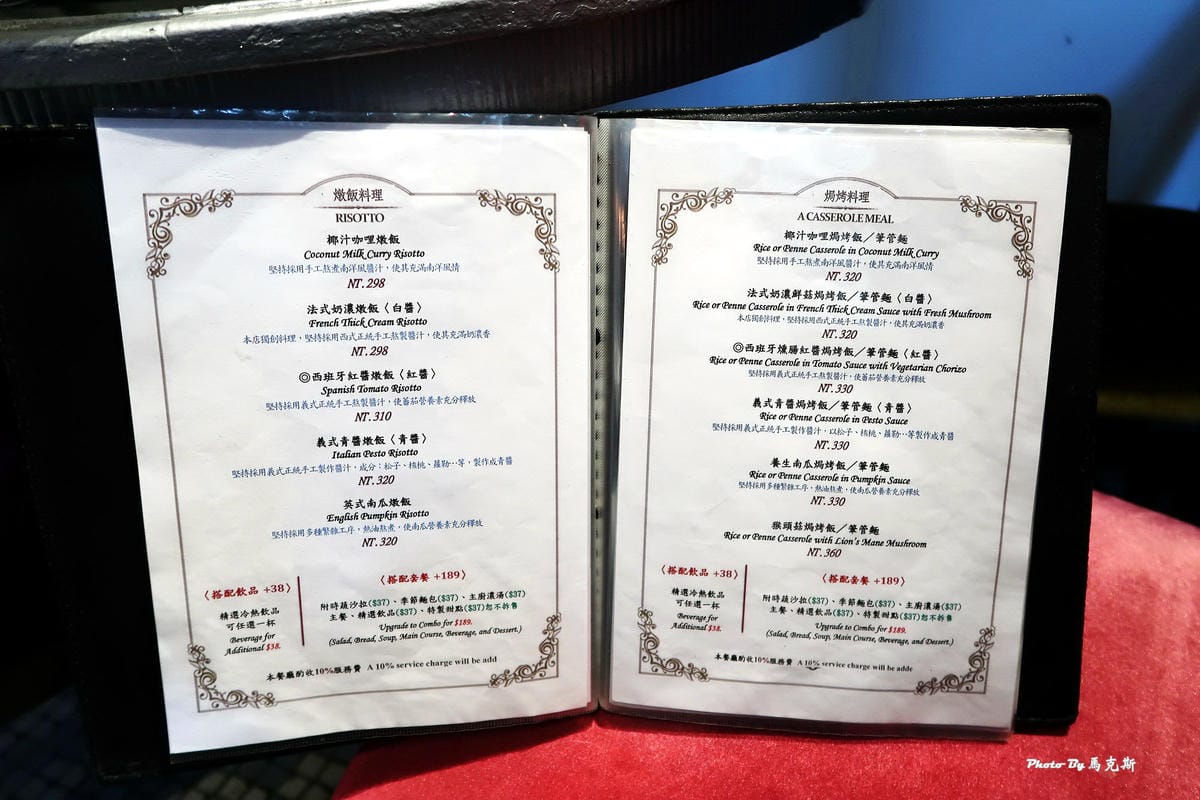 燉飯料理
RISOTTO
椰汁咖哩燉飯
Coconut Milk Curry Risotto
堅持採用手工熬煮南洋風醬汁，使其充滿南洋風情
NT.298
法式奶濃燉飯〈白醬〉
French Thick Cream Risotto
本店獨創料理，堅持採用西式正統手工熬製醬汁，使其充滿奶濃香
NT.298
◎西班牙紅醬燉飯〈紅醬〉
Spanish Tomato Risotto
堅持採用義式正統手工熬製醬汁，使蕃茄營養素充分釋放
NT.310
義式青醬燉飯〈青醬〉
Italian Pesto Risotto
堅持採用義式正統手工製作醬汁，成分：松子、核桃、蘿勒…等，製作成青醬
NT.320
英式南瓜燉飯
English Pumpkin Risotto
堅持採用多種繁雜工序，熱油熬煮，使南瓜營養素充分釋放
NT.320
〈搭配飲品 +38〉
精選冷熱飲品
可任選一杯
Beverage for
Additional $38.
〈搭配套餐 +189〉
附時蔬沙拉($37)、季節麵包($37)、主廚濃湯($37)
主餐、精選飲品($37)、特製甜點($37)恕不拆售
Upgrade to Combo for $189.
(Salad, Bread, Soup, Main Course, Beverage, and Dessert.)
本餐廳酌收10%服務費 A 10% service charge will be add
焗烤料理
A CASSEROLE MEAL
椰汁咖哩焗烤飯／筆管麵
Rice or Penne Casserole in Coconut Milk Curry
堅持採用手工熬煮南洋風醬汁，使其充滿南洋風情
NT.320
法式奶濃鮮菇焗烤飯／筆管麵〈白醬〉
Rice or Penne Casserole in French Thick Cream Sauce with Fresh Mushroom
本店獨創料理，堅持採用西式正統手工熬製醬汁，使其充滿奶濃香
NT.320
◎西班牙燻腸紅醬焗烤飯／筆管麵〈紅醬〉
Rice or Penne Casserole in Tomato Sauce with Vegetarian Chorizo
堅持採用義式正統手工熬製醬汁，使蕃茄營養素充分釋放
NT.330
義式青醬焗烤飯／筆管麵〈青醬〉
Rice or Penne Casserole in Pesto Sauce
堅持採用義式正統手工製作醬汁，以松子、核桃、蘿勒…等製作成青醬
NT.330
養生南瓜焗烤飯／筆管麵
Rice or Penne Casserole in Pumpkin Sauce
堅持採用多種繁雜工序，熱油熬煮，使南瓜營養素充分釋放
NT.330
猴頭菇焗烤飯／筆管麵
Rice or Penne Casserole with Lion's Mane Mushroom
NT.360
〈搭配飲品 +38〉
精選冷熱飲品
可任選一杯
Beverage for
Additional $38.
〈搭配套餐 +189〉
附時蔬沙拉($37)、季節麵包($37)、主廚濃湯($37)
主餐、精選飲品($37)、特製甜點($37)恕不拆售
Upgrade to Combo for $189.
(Salad, Bread, Soup, Main Course, Beverage, and Dessert.)
本餐廳酌收10%服務費 A 10% service charge will be adde
Photo By 馬克斯